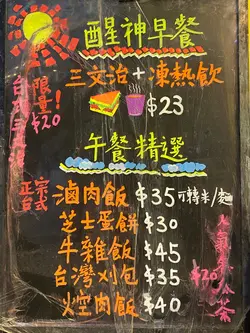 醒神早餐
三文治+凍熱飲
$23
限量!
$20
午餐精選
正宗
台式
滷肉飯 $35 可轉米/麵
芝士蛋餅 $30
牛雜飯 $45
台灣刈包 $35
焢肉飯 $40
$20